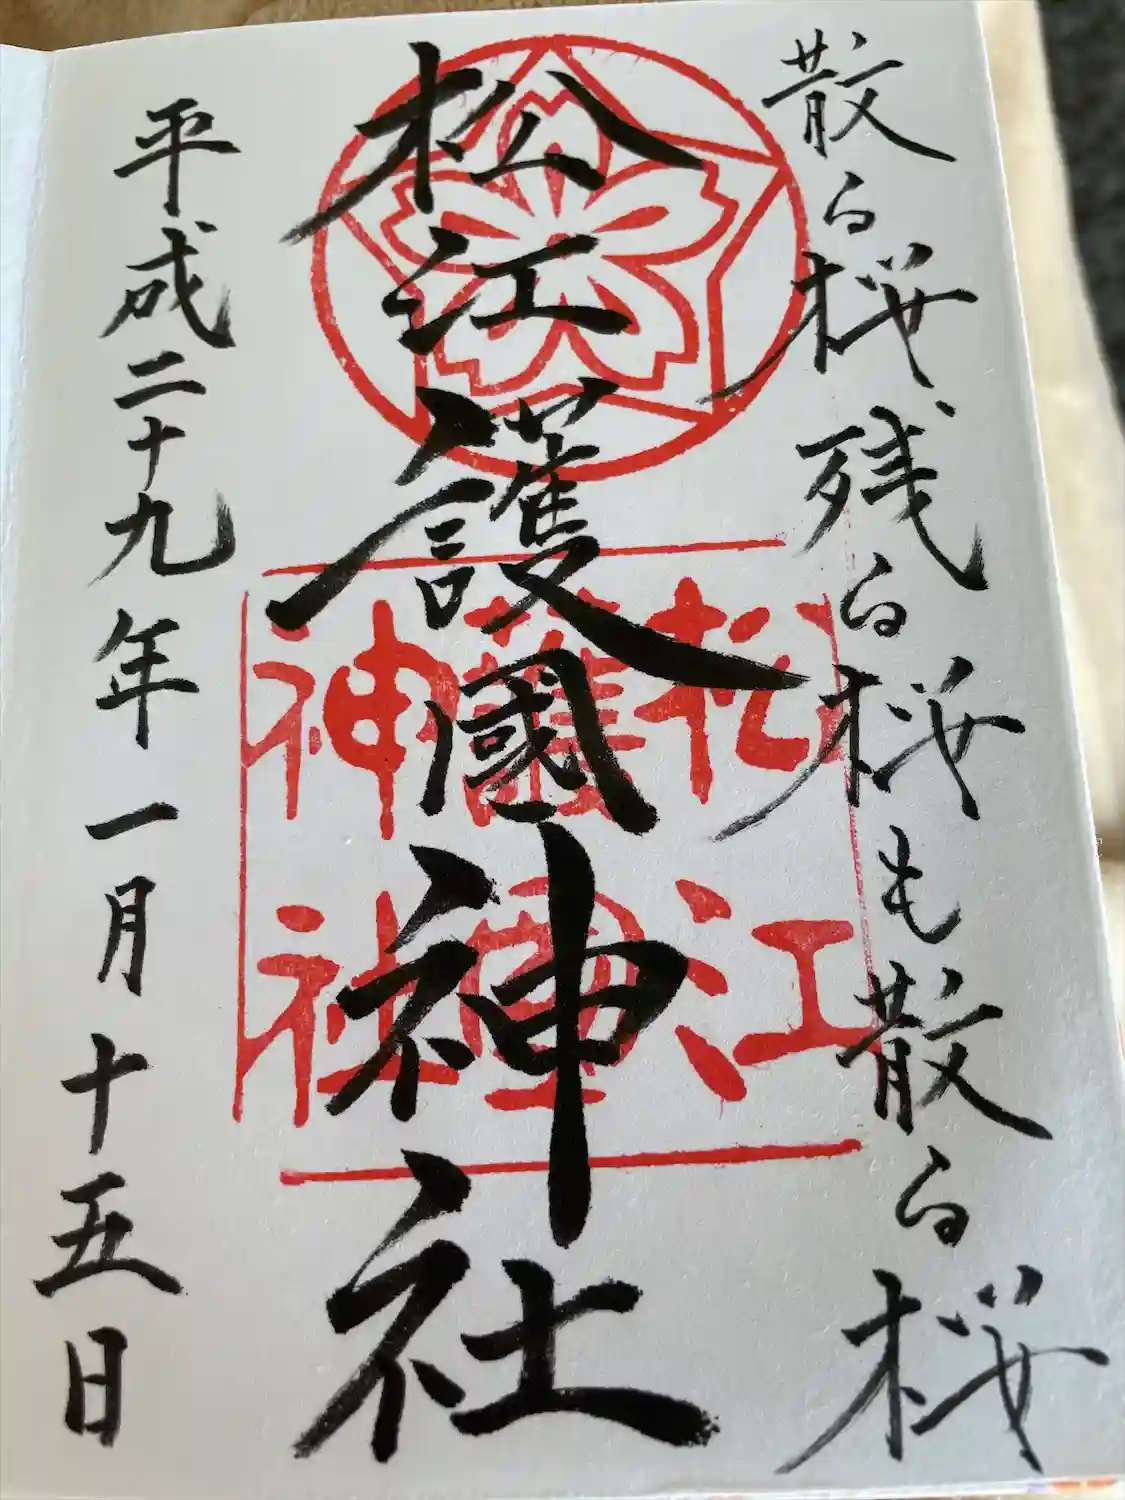 散る桜残る桜も散る桜
松江護國神社
松江護國神社
平成二十九年一月十五日